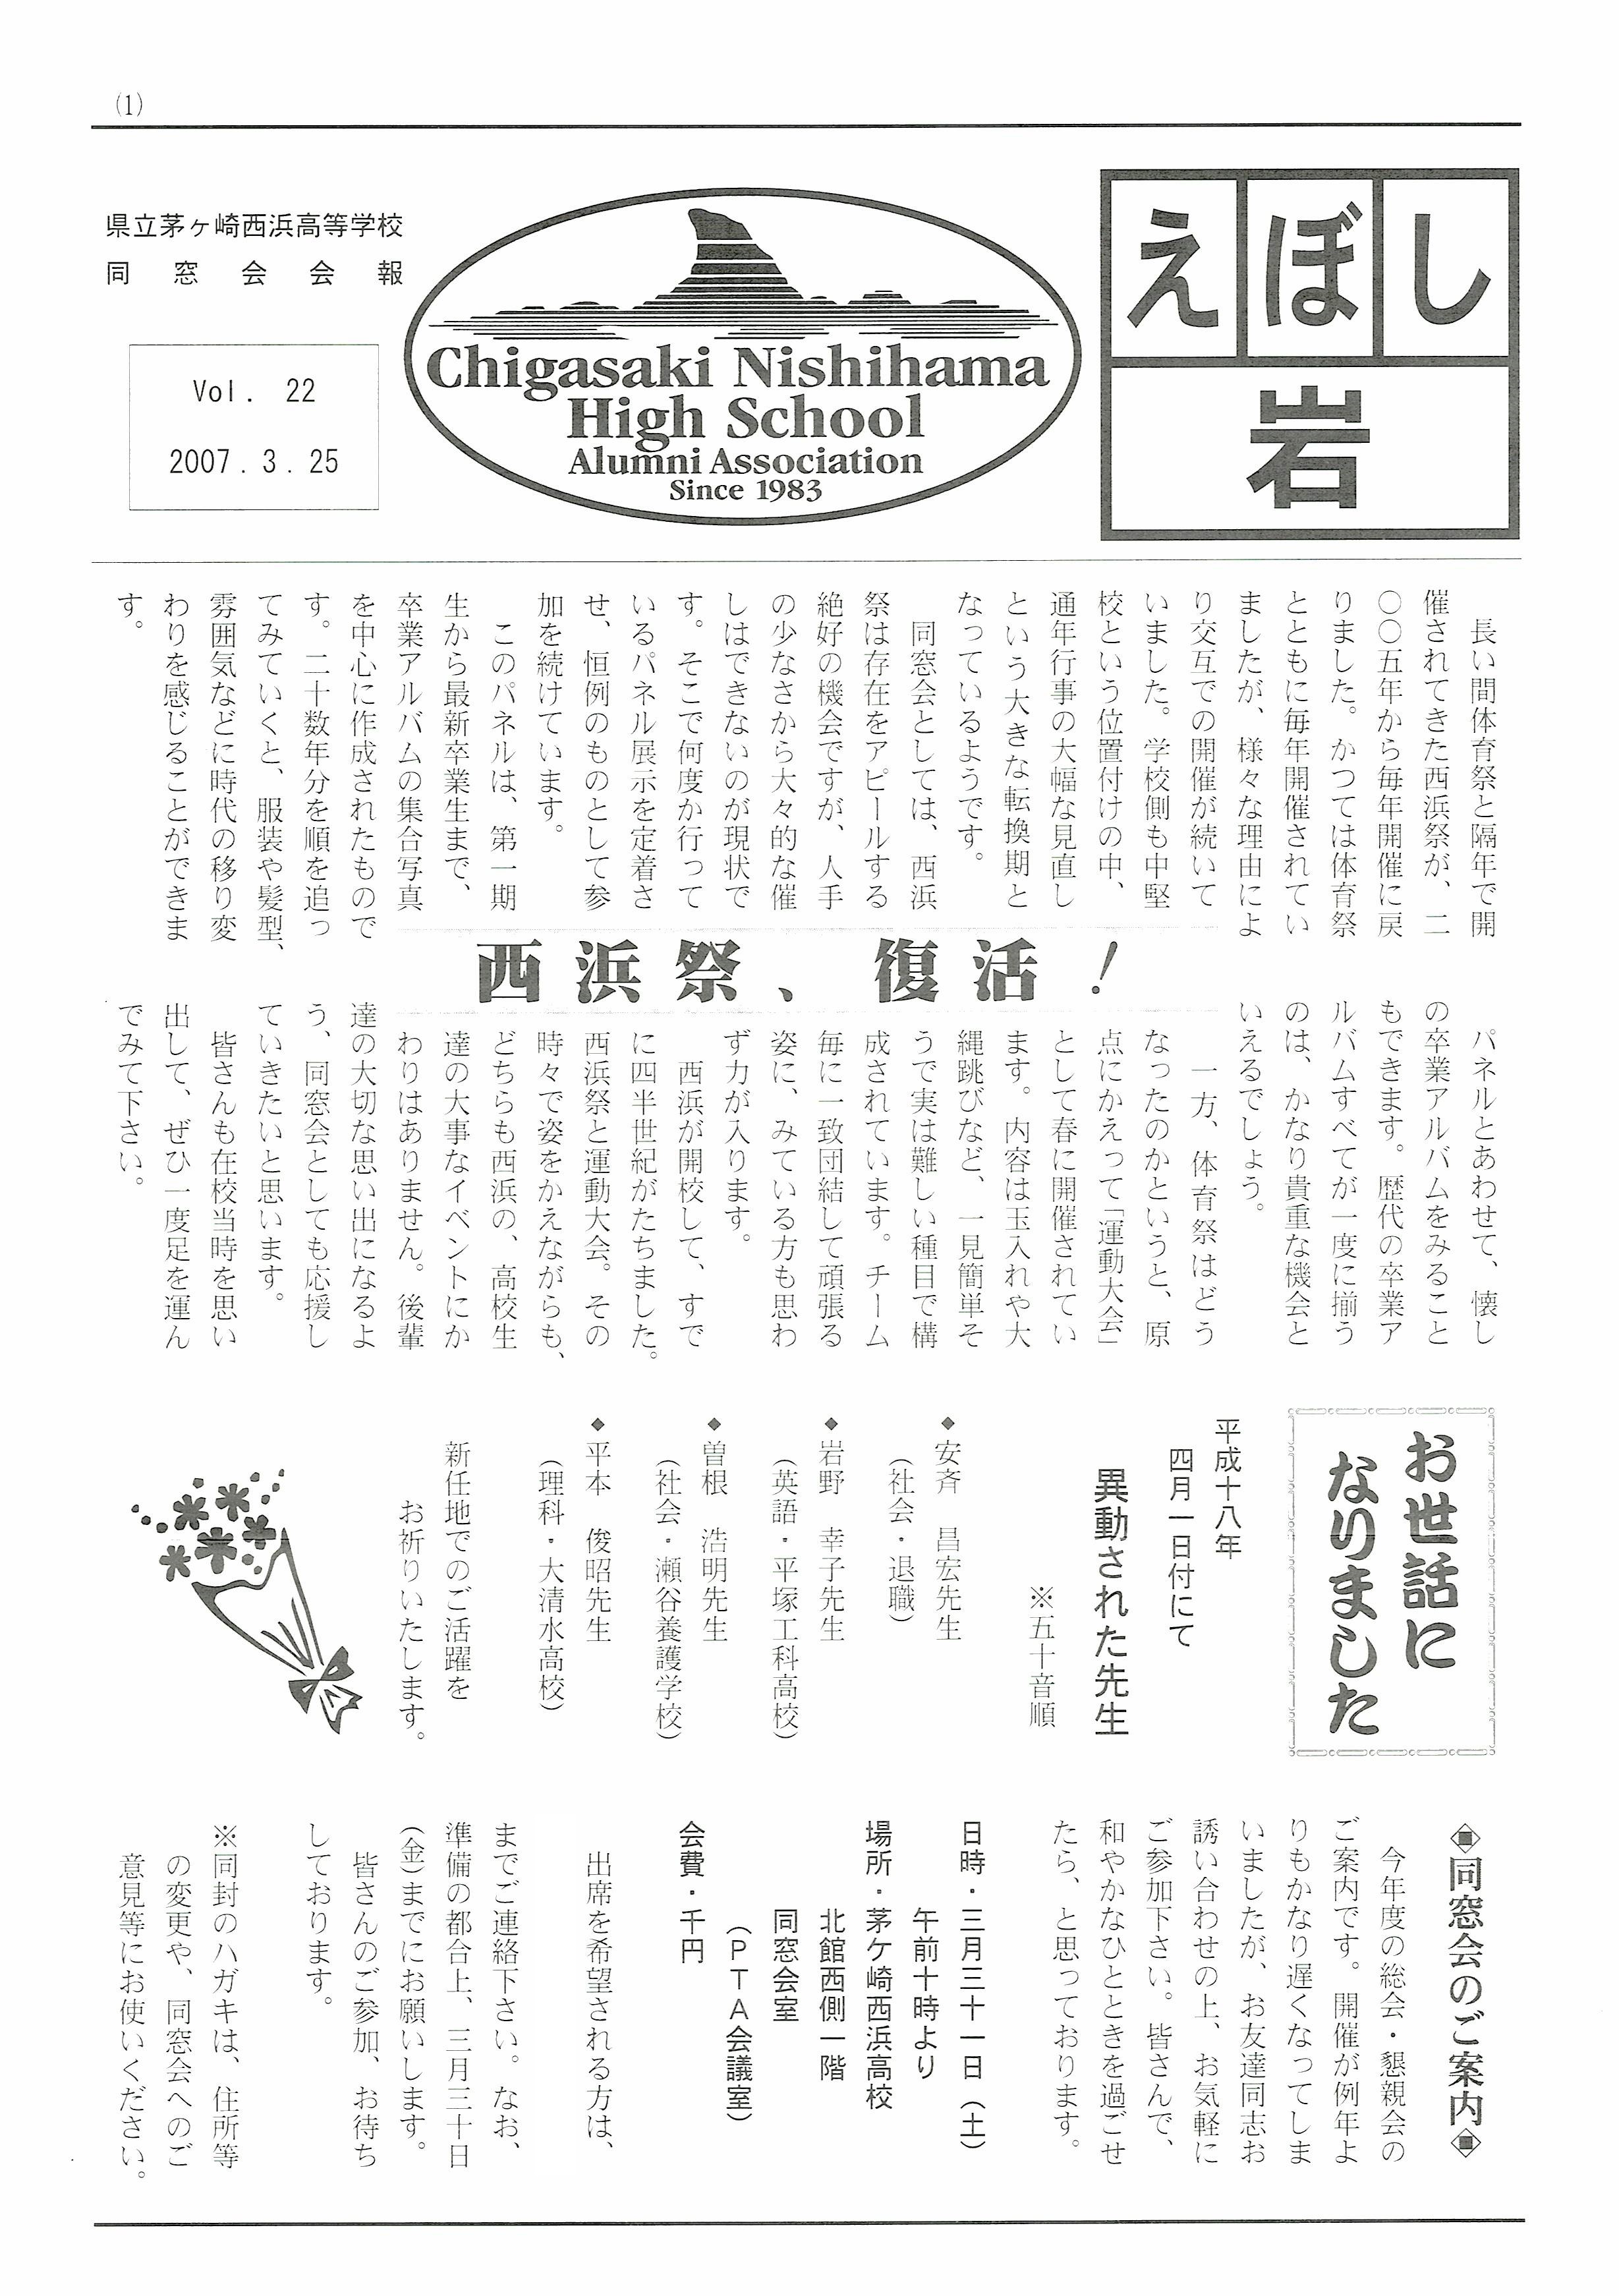 (1)
えぼし
岩
県立茅ヶ崎西浜高等学校
同窓会会報
Vol. 22
2007.3.25
Chigasaki Nishihama
High School
Alumni Association
Since 1983
西浜祭、復活！
長い間体育祭と隔年で開
催されてきた西浜祭が、二
〇〇五年から毎年開催に戻
りました。かつては体育祭
とともに毎年開催されてい
ましたが、様々な理由によ
り交互での開催が続いて
いました。学校側も中堅
校という位置付けの中、
通年行事の大幅な見直し
という大きな転換期と
なっているようです。
同窓会としては、西浜
祭は存在をアピールする
絶好の機会ですが、人手
の少なさから大々的な催
しはできないのが現状で
す。そこで何度か行って
いるパネル展示を定着さ
せ、恒例のものとして参
加を続けています。
このパネルは、第一期
生から最新卒業生まで、
卒業アルバムの集合写真
を中心に作成されたもので
す。二十数年分を順を追っ
てみていくと、服装や髪型、
雰囲気などに時代の移り変
わりを感じることができま
す。
パネルとあわせて、懐し
の卒業アルバムをみること
もできます。歴代の卒業ア
ルバムすべてが一度に揃う
のは、かなり貴重な機会と
いえるでしょう。
一方、体育祭はどう
なったのかというと、原
点にかえって「運動大会」
として春に開催されてい
ます。内容は玉入れや大
縄跳びなど、一見簡単そ
うで実は難しい種目で構
成されています。チーム
毎に一致団結して頑張る
姿に、みている方も思わ
ず力が入ります。
西浜が開校して、すで
に四半世紀がたちました。
西浜祭と運動大会。その
時々で姿をかえながらも、
どちらも西浜の、高校生
達の大事なイベントにか
わりはありません。後輩
達の大切な思い出になるよ
う、同窓会としても応援し
ていきたいと思います。
皆さんも在校当時を思い
出して、ぜひ一度足を運ん
でみて下さい。
お世話に
なりました
平成十八年
四月一日付にて
異動された先生
※五十音順
◆安斉　昌宏先生
（社会・退職）
◆岩野　幸子先生
（英語・平塚工科高校）
◆曽根　浩明先生
（社会・瀬谷養護学校）
◆平本　俊昭先生
（理科・大清水高校）
新任地でのご活躍を
お祈りいたします。
◈同窓会のご案内◈
今年度の総会・懇親会の
ご案内です。開催が例年よ
りもかなり遅くなってしま
いましたが、お友達同志お
誘い合わせの上、お気軽に
ご参加下さい。皆さんで、
和やかなひとときを過ごせ
たら、と思っております。
日時・三月三十一日（土）
午前十時より
場所・茅ケ崎西浜高校
北館西側一階
同窓会室
（ＰＴＡ会議室）
会費・千円
出席を希望される方は、
までご連絡下さい。なお、
準備の都合上、三月三十日
（金）までにお願いします。
皆さんのご参加、お待ち
しております。
※同封のハガキは、住所等
の変更や、同窓会へのご
意見等にお使いください。